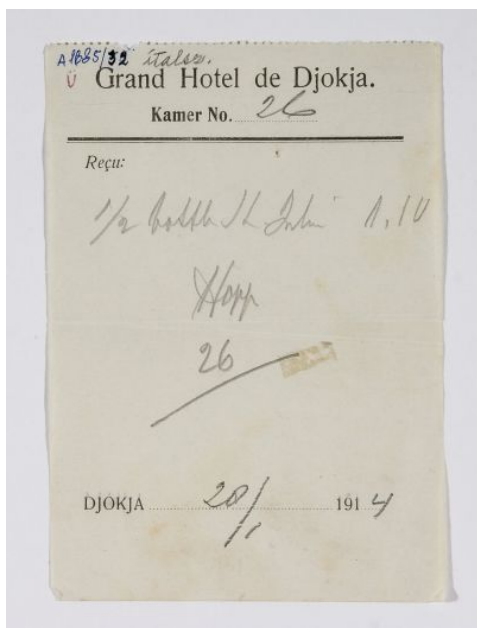 A 1885/32 italsz.
Ü Grand Hotel de Djokja.
Kamer No. 26
Reçu:
1/2 bottle St. Julien 1.10
Hopp
26
DJOKJA 20/11 1914